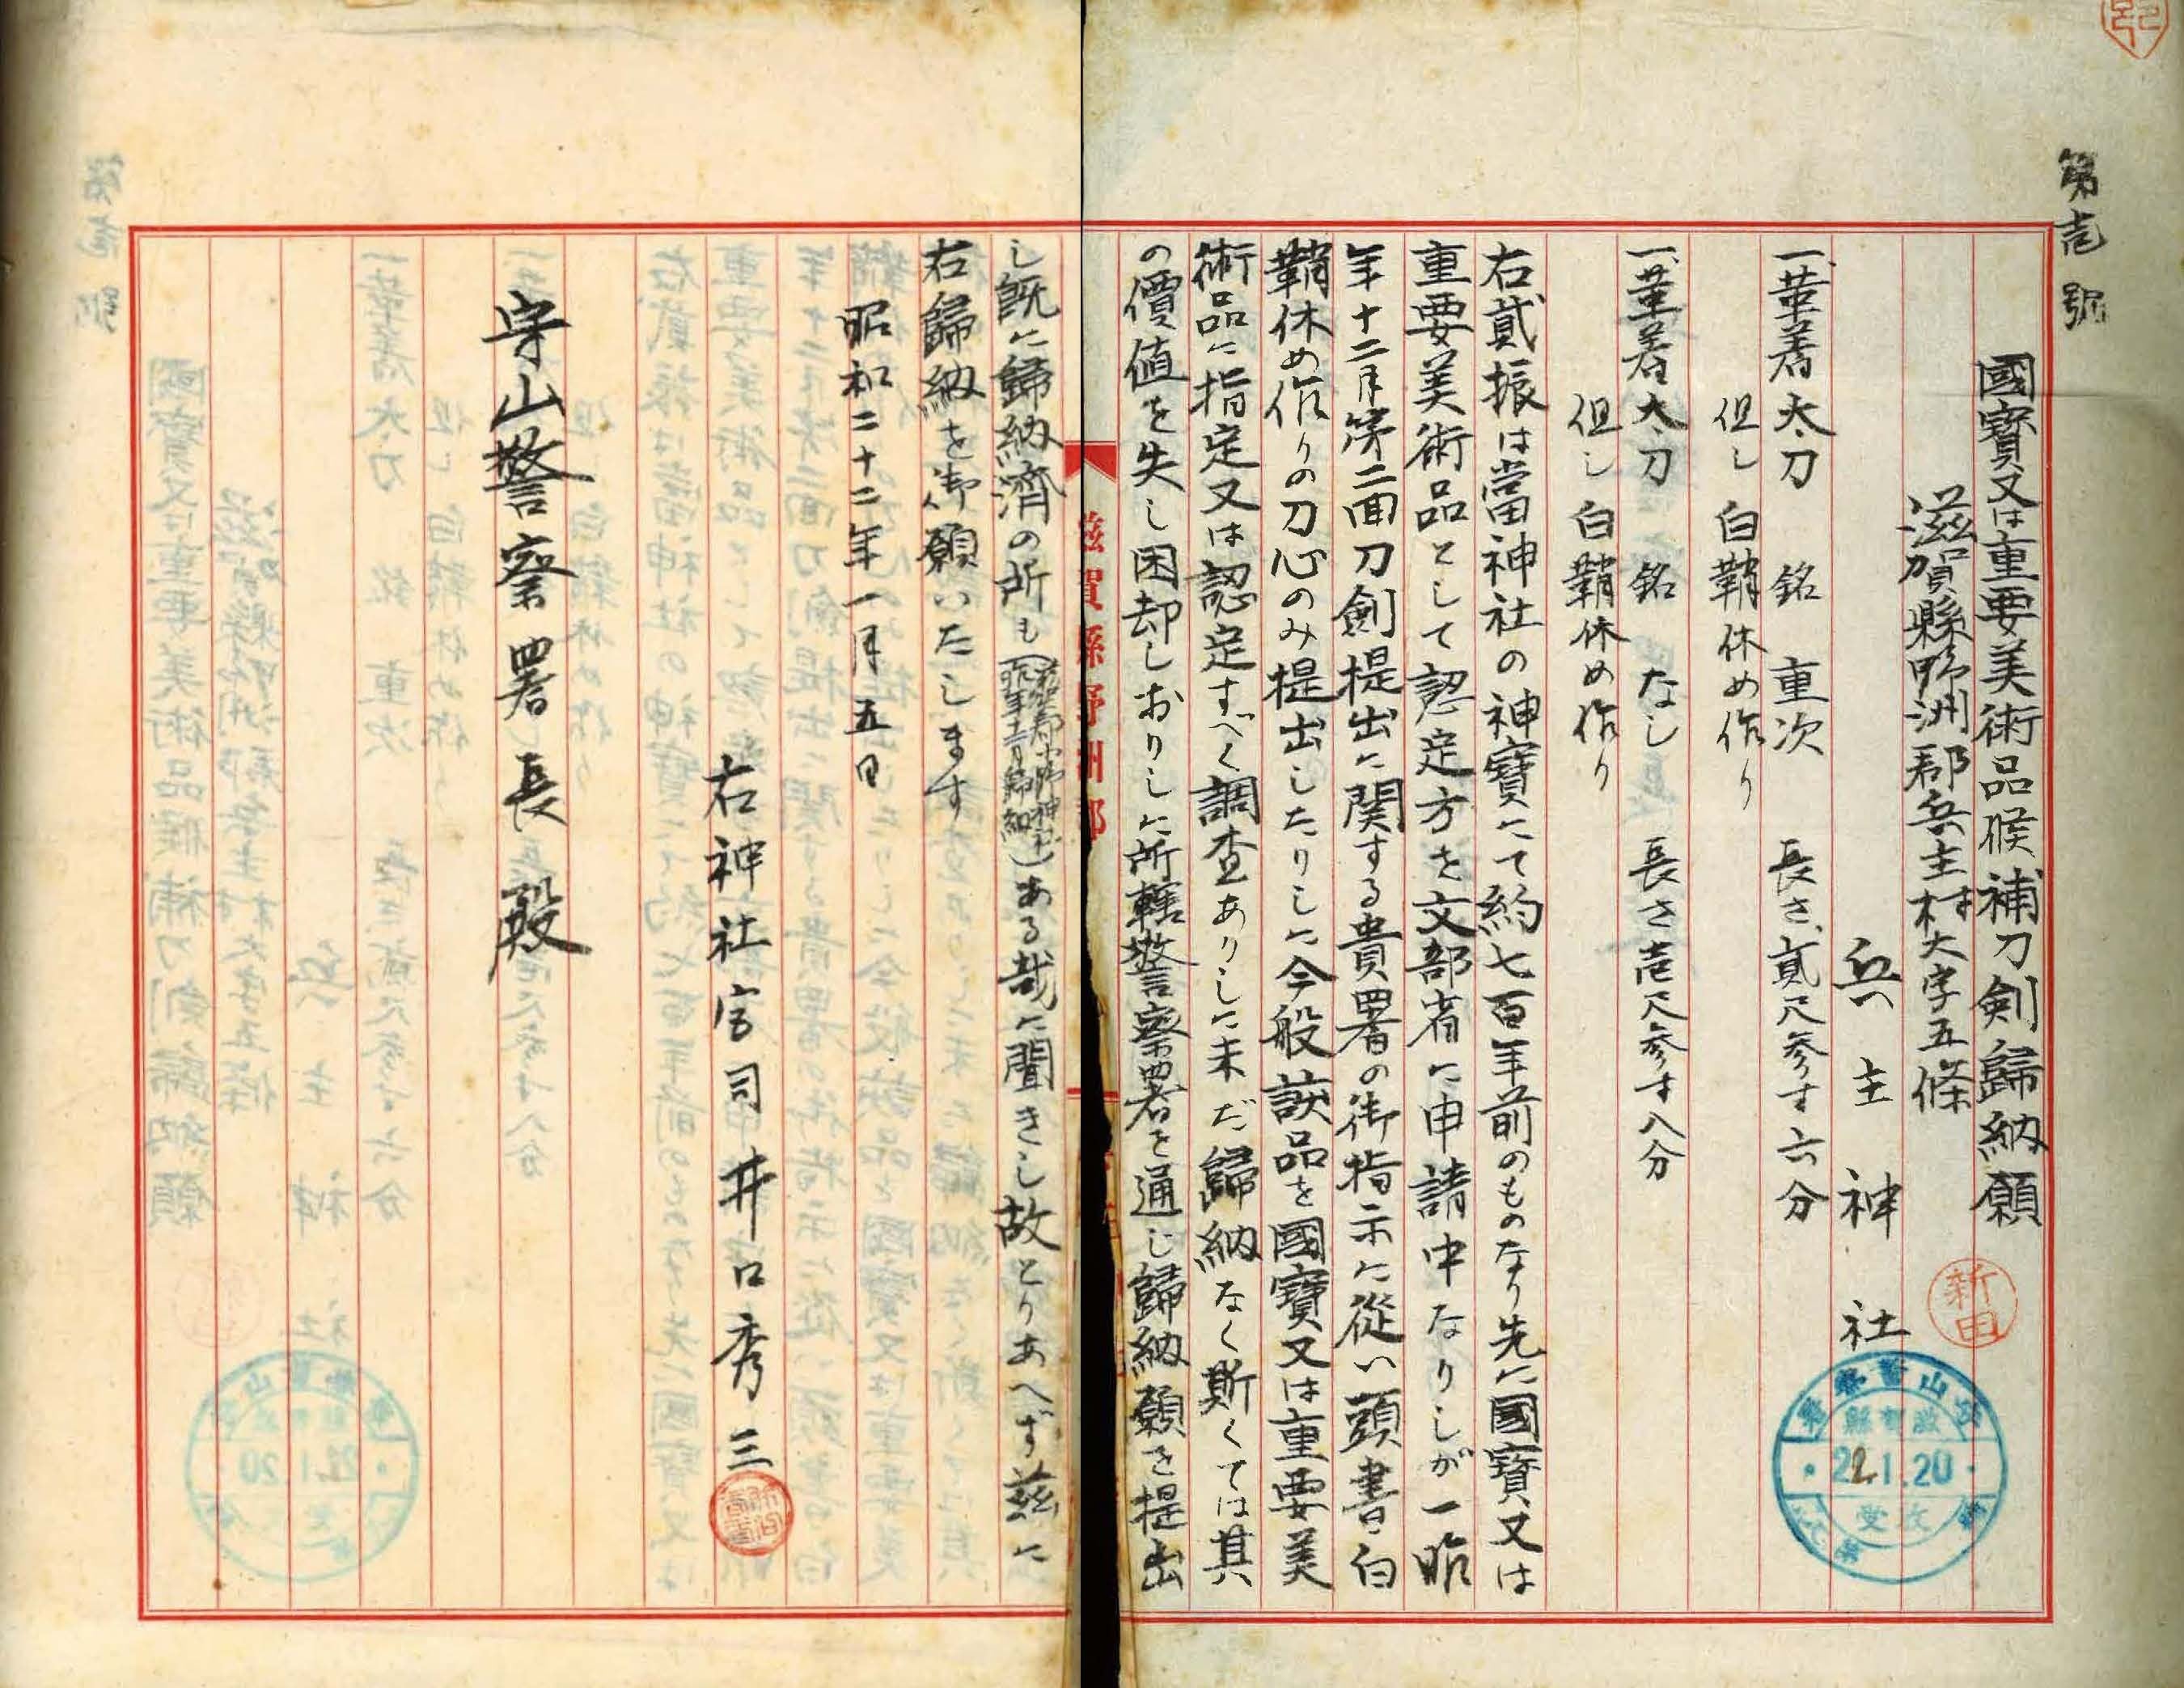 第壱號
國寳又は重要美術品候補刀剣歸納願
滋賀縣野洲郡兵主村大字五條
兵主神社
新田
一、革着太刀　銘　重次　長さ、貳尺参寸六分
但し白鞘休め作り
一、革着太刀　銘　なし　長さ壱尺参寸八分
但し白鞘休め作り
右貳振は當神社の神寳にて約七百年前のものなり先に國寳又は
重要美術品として認定方を文部省に申請中なりしが一昨
年十二月第二面刀剣提出に関する貴署の御指示に從い頭書白
鞘休め作りの刀心のみ提出したりしに今般該品を國寳又は重要美
術品に指定又は認定すべく調査ありしに未だ歸納なく斯くては其
の價値を失し困却しおりしに所轄警察署を通し歸納願を提出
し既に歸納済の所も
昨年十二月歸納)ある哉に聞きし故とりあへず茲に
右歸納を御願いたします
昭和二十二年一月五日
右神社宮司井口秀三
守山警察署長殿
滋賀縣野洲郡
守山警察署
滋賀縣
22.1.20
受